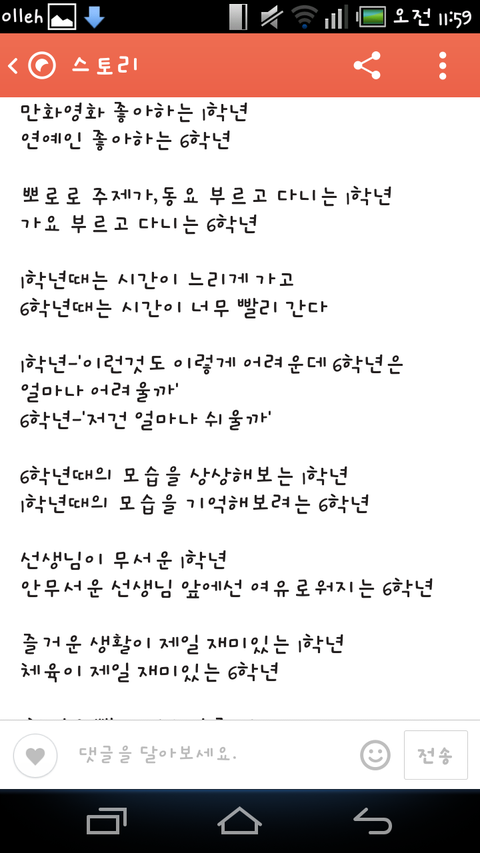 olleh 오전 11:59
스토리
만화영화 좋아하는 1학년
연예인 좋아하는 6학년
뽀로로 주제가,동요 부르고 다니는 1학년
가요 부르고 다니는 6학년
1학년때는 시간이 느리게 가고
6학년때는 시간이 너무 빨리 간다
1학년-'이런것도 이렇게 어려운데 6학년은
얼마나 어려울까'
6학년-'저건 얼마나 쉬울까'
6학년때의 모습을 상상해보는 1학년
1학년때의 모습을 기억해보려는 6학년
선생님이 무서운 1학년
안무서운 선생님 앞에선 여유로워지는 6학년
즐거운 생활이 제일 재미있는 1학년
체육이 제일 재미있는 6학년
댓글을 달아보세요.
전송